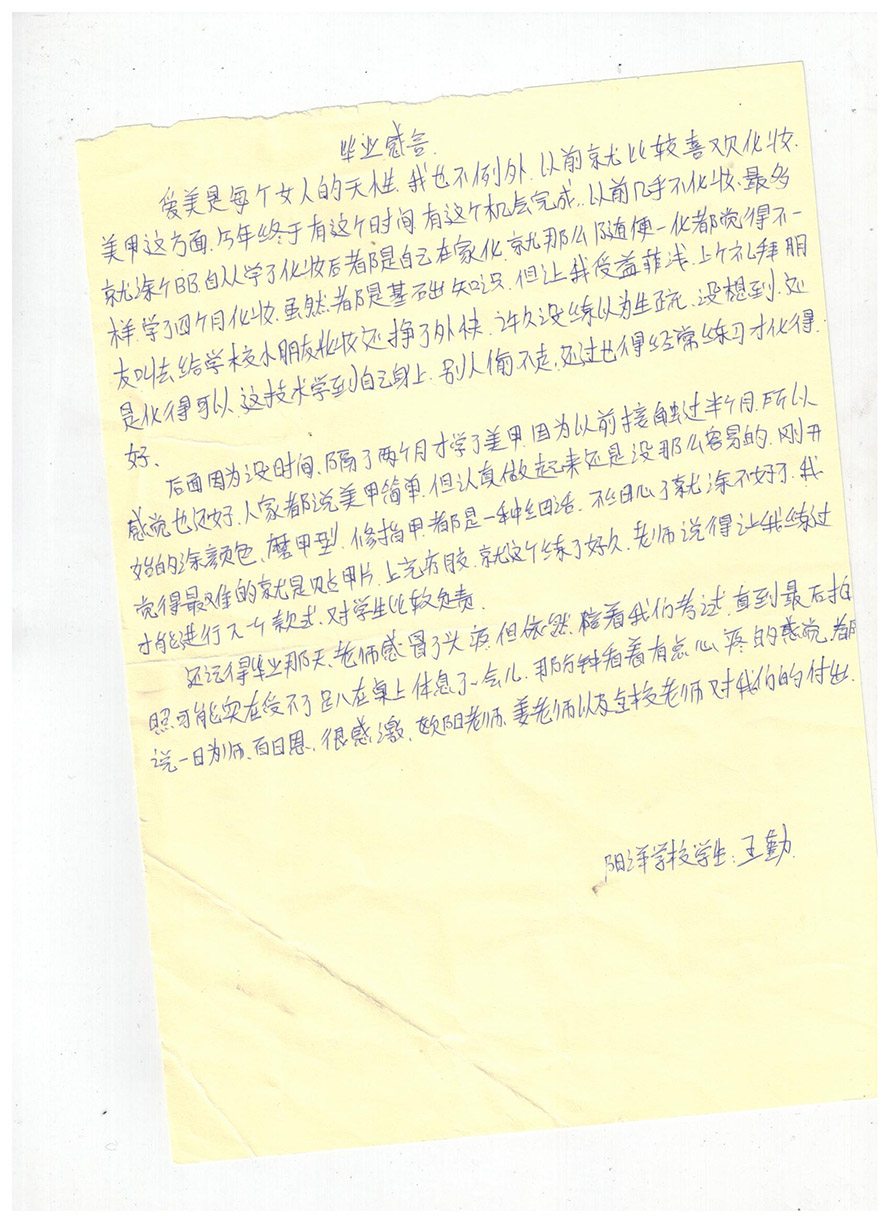 毕业感言.
爱美是每个女人的天性.我也不例外.以前就比较喜欢化妆.
美甲这方面.今年终于有这个时间.有这个机会完成.以前几乎不化妆.最多
就涂个BB.自从学了化妆后者都是自己在家化.就那么随便一化都觉得不一
样.学了四个月化妆.虽然都是基础知识.但让我受益菲浅.上个礼拜朋
友叫去给学校小朋友化妆还挣了外快.许久没练以为生疏.没想到.还
是化得可以.这技术学到自己身上.别人偷不走.还过也得经常练习才化得.
好、
后面因为没时间.隔了两个月才学了美甲.因为以前接触过半个月.所以
感觉也还好.人家都说美甲简单.但认真做起来还是没那么容易的.刚开
始的涂颜色、磨甲型.修指甲.都是一种细活.不细心了就涂不好了.我
觉得最难的就是贴甲片.上光疗胶.就这个练了好久.老师说得让我练过
才能进行下一个款式.对学生比较负责.
还记得毕业那天.老师感冒了头疼.但依然.陪着我们考试.直到最后拍
照.可能实在受不了趴在桌上休息了一会儿.那分钟看着有点心疼的感觉.都
说一日为师.百日恩.很感激.欧阳老师、姜老师以及全校老师对我们的付出.
阳洋学校学生:王勤.